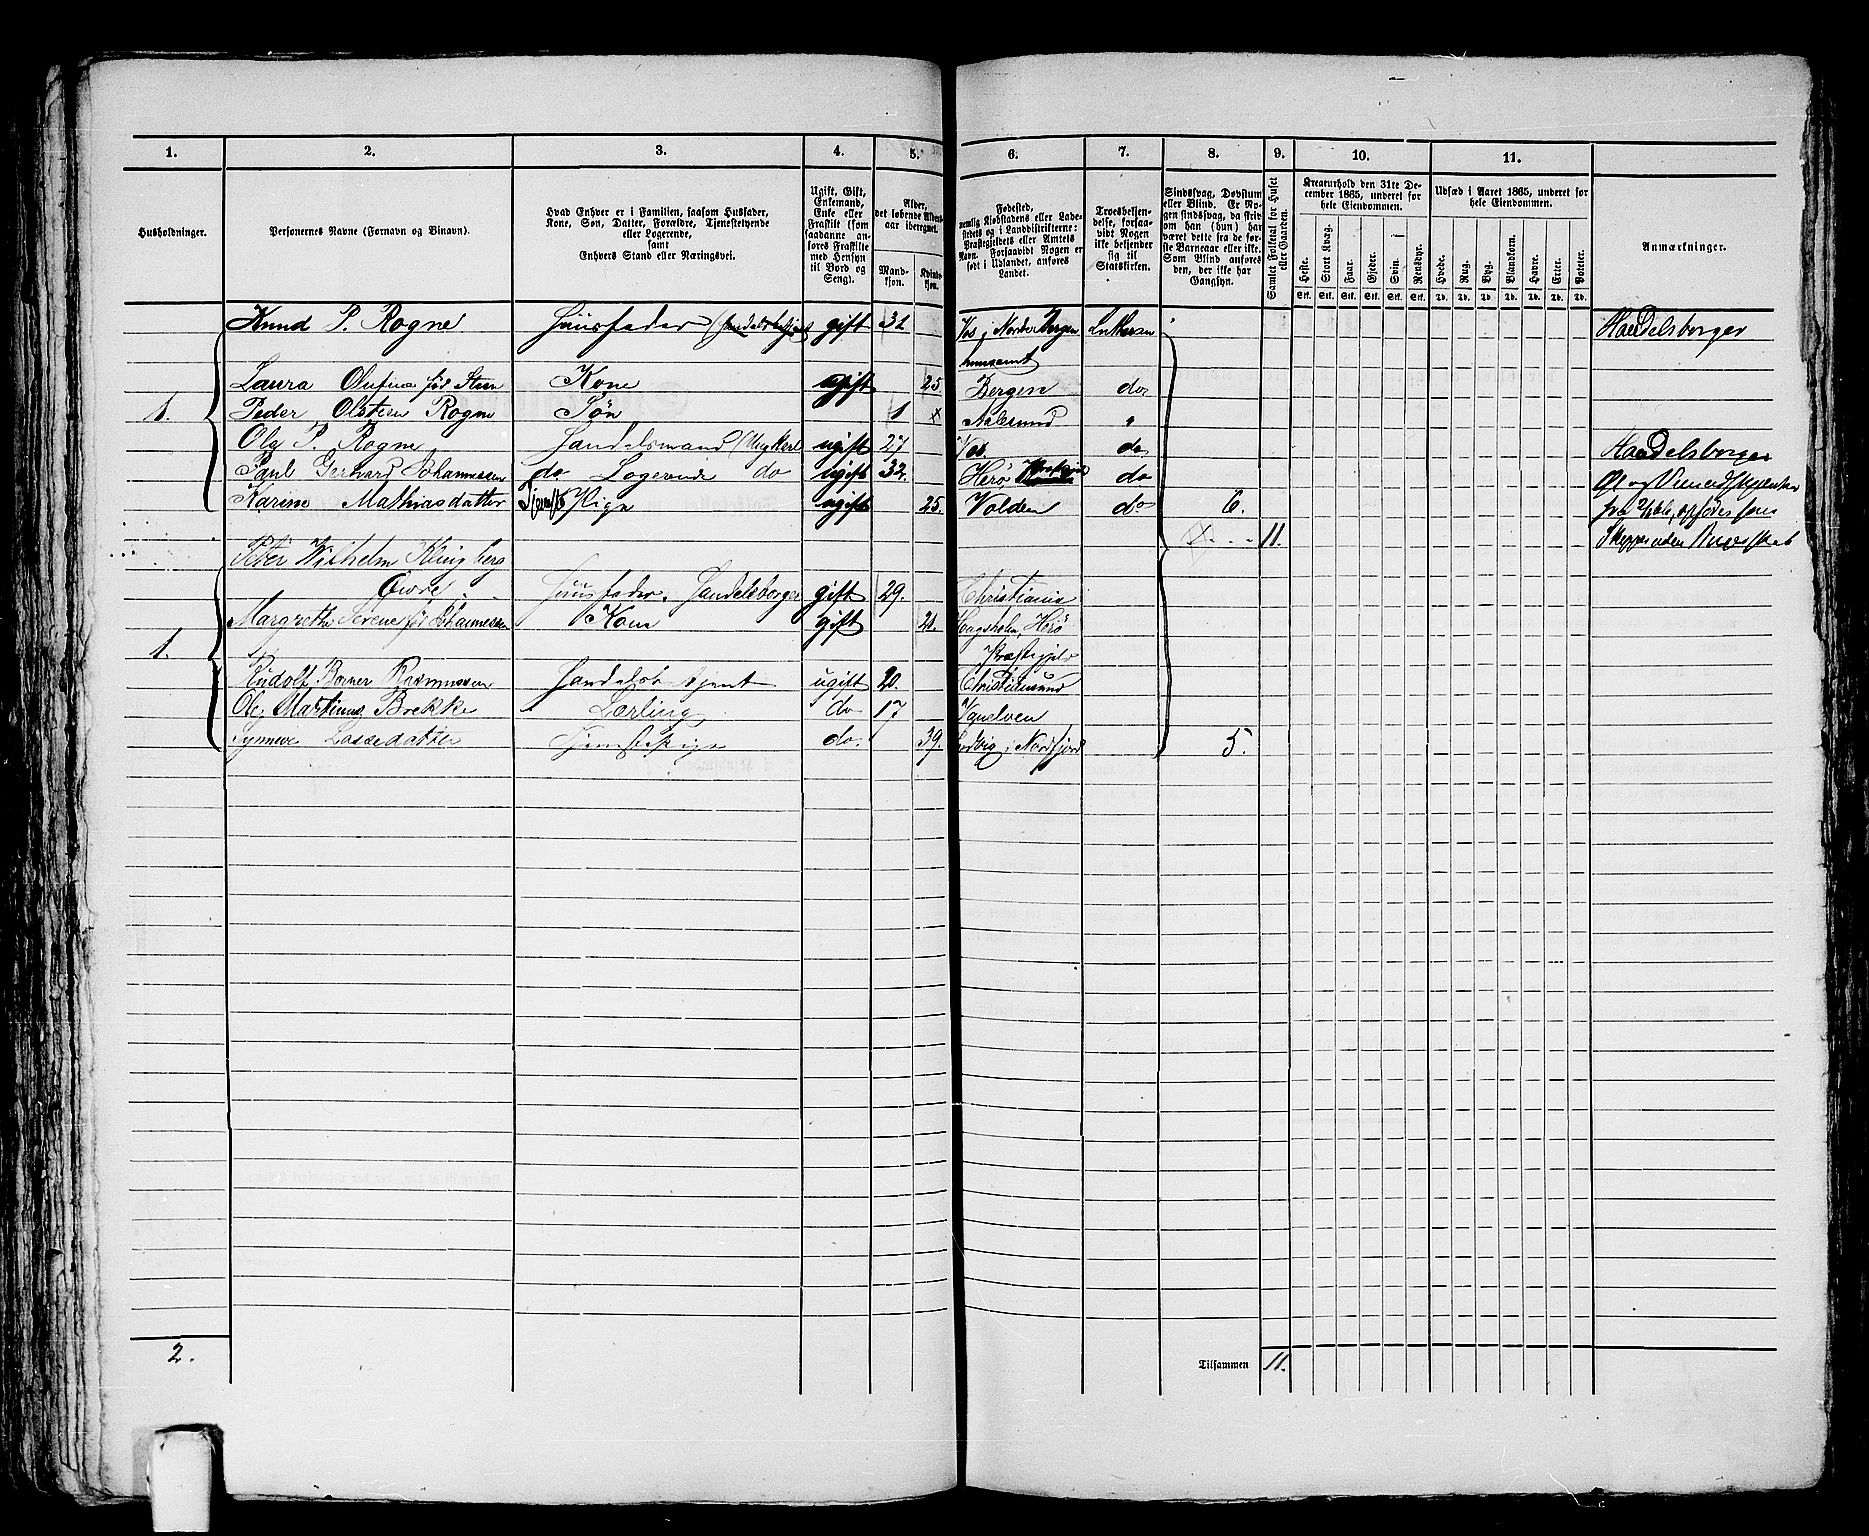 1. 2. 3. 4. 5. 6. 7. 8. 9. 10. 11.
Husholdninger.
Personernes Navne (Fornavn og Binavn).
Hvad Enhver er i Familien, saasom Husfader,
Kone, Søn, Datter, Forældre, Tjenestetyende
eller Logerende,
samt
Enhvers Stand eller Næringsvei.
Ugift, Gift,
Enkemand,
Enke eller
Fraskilt (som
saadanne an-
føres Fraskilte
med Hensyn
til Bord og
Seng).
Alder,
det løbende Alders-
aar iberegnet.
Mand-
kjøn.
Kvinde-
kjøn.
Fødested,
nemlig Kjøbstadens eller Lade-
stedets og i Landdistrikterne:
Præstegjeldets eller Amtets
Navn. Forsaavidt Nogen er
født i Udlandet, anføres
Landet.
Troesbekjen-
delse, forsaa-
vidt Nogen
ikke bekjender
sig til
Statskirken.
Sindssvag, Døvstum
eller Blind. Er No-
gen sindssvag, da skriv
om han (hun) har
været dette fra de før-
ste Barneaar eller ikke.
Som Blind anføres
den, der ikke har
Gangsyn.
Samlet Folketal for Huset
eller Gaarden.
Kreaturhold den 31te De-
cember 1865, underet for
hele Eiendommen.
Heste. Stort Kvæg. Faar. Gjeder. Svin. Rensdyr.
Stk. Stk. Stk. Stk. Stk. Stk.
Udsæd i Aaret 1865, underet for
hele Eiendommen.
Hvede. Rug. Byg. Blandkorn. Havre. Erter. Poteter.
Td. Td. Td. Td. Td. Td. Td.
Anmærkninger.
Knud P. Rogne Huusfader gift 31 Vos i Nordre Bergen Luthersn Handelsborger
huusamt
Laura Olufine født Steen Kone ugift 25. Bergen do
1. Peder Olsteen Rogne Søn 1 Aalesund "
Ole P. Rogne Handelsmand (Ungkarl ugift 27 Vos. do Handelsborger
Paul Gerhard Johannessen do Logerende do ugift 32. Herø do
Karine Mathiasdatter Tjeneste Pige ugift 25. Volden do 6.
11.
Peter Wilhelm Klingberg
Huusfader. Handelsborger gift 29. Christiania
Margrethe Serene før Johannessen Kone gift 21. Herø
1. Præstegjeld
Rudolf Berner Rasmussen Handelsbetjent ugift 20. Christiansund
Ole Martinus Brekke Lærling do 17
Synneve Lassedatter Tjenestepige do. 39. i Nordfjord 5.
2. Tilsammen 11.